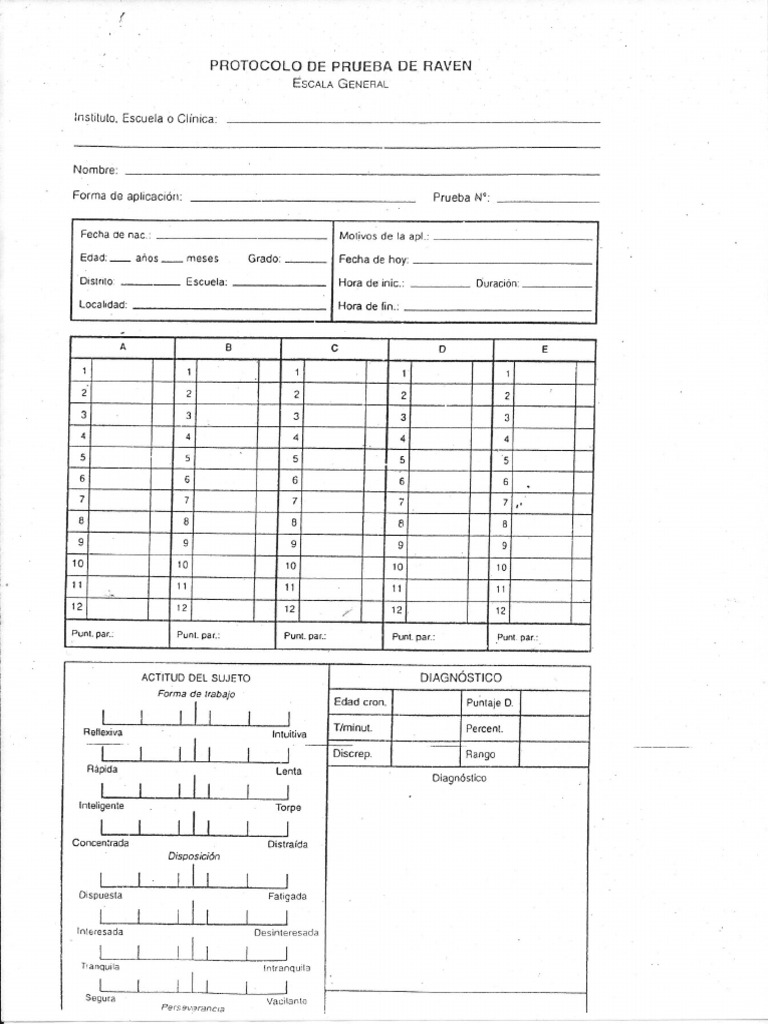 PROTOCOLO DE PRUEBA DE RAVEN
ESCALA GENERAL
Instituto, Escuela o Clínica:
Nombre:
Forma de aplicación: Prueba Nº:
Fecha de nac.: Motivos de la apl.:
Edad: años meses Grado: Fecha de hoy:
Distrito: Escuela: Hora de inic.: Duración:
Localidad: Hora de fin.:
A B C D E
1 1 1 1 1
2 2 2 2 2
3 3 3 3 3
4 4 4 4 4
5 5 5 5 5
6 6 6 6 6
7 7 7 7 7
8 8 8 8 8
9 9 9 9 9
10 10 10 10 10
11 11 11 11 11
12 12 12 12 12
Punt. par.: Punt. par.: Punt. par.: Punt. par.: Punt. par.:
ACTITUD DEL SUJETO
Forma de trabajo
Reflexiva Intuitiva
Rápida Lenta
Inteligente Torpe
Concentrada Distraída
Disposición
Dispuesta Fatigada
Interesada Desinteresada
Tranquila Intranquila
Segura Vacilante
Perseverancia
DIAGNÓSTICO
Edad cron. Puntaje D.
T/minut. Percent.
Discrep. Rango
Diagnóstico